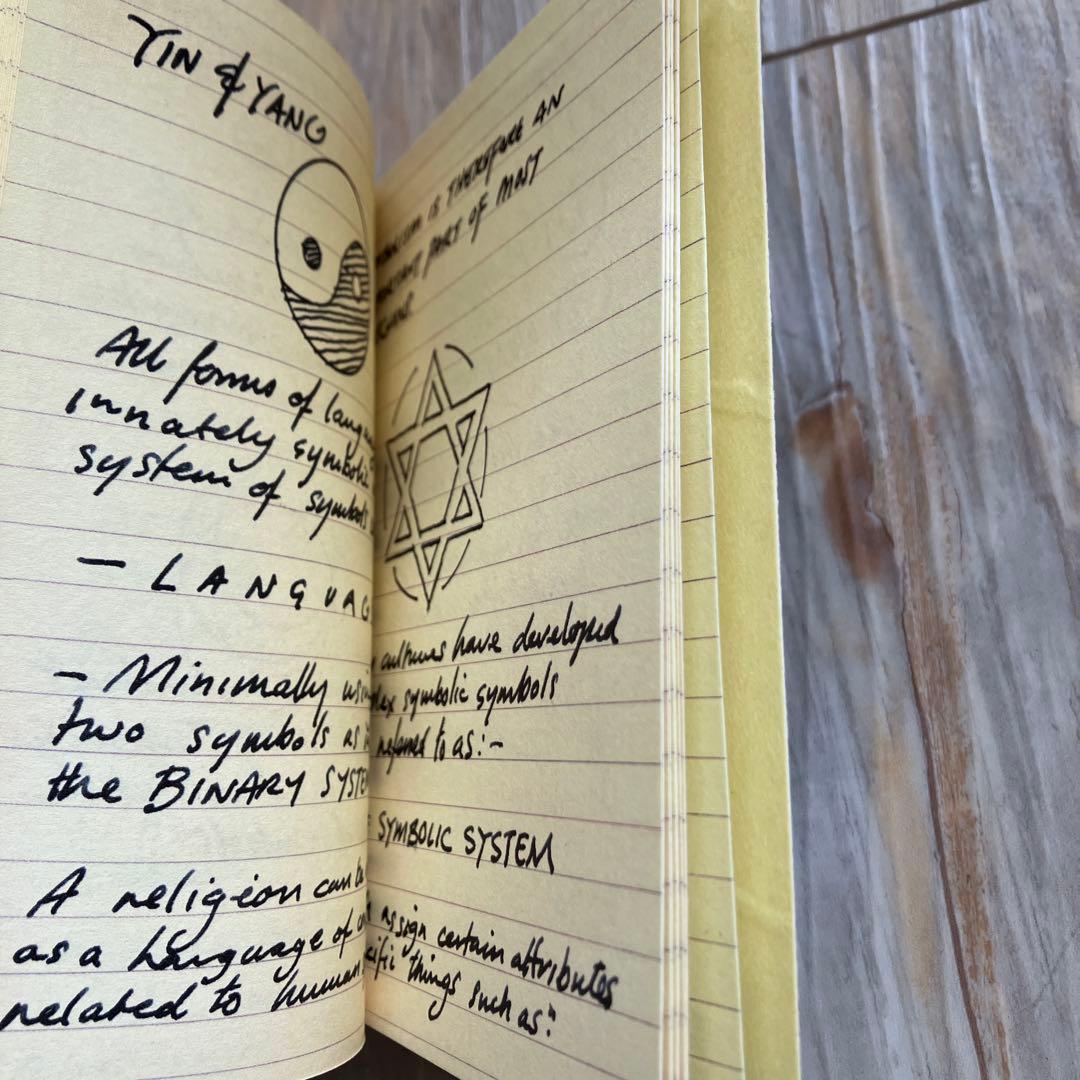 YIN & YANG
All forms of
innately symbolic
system of symbols
- LANGUAG
- Minimally
two symbols as
the BINARY SYSTE
A religion can be
as a language of
related to human
IS THEREFORE AN
PART OF MOST
cultures have developed
symbolic symbols
referred to as:-
SYMBOLIC SYSTEM
assign certain attributes
things such as: